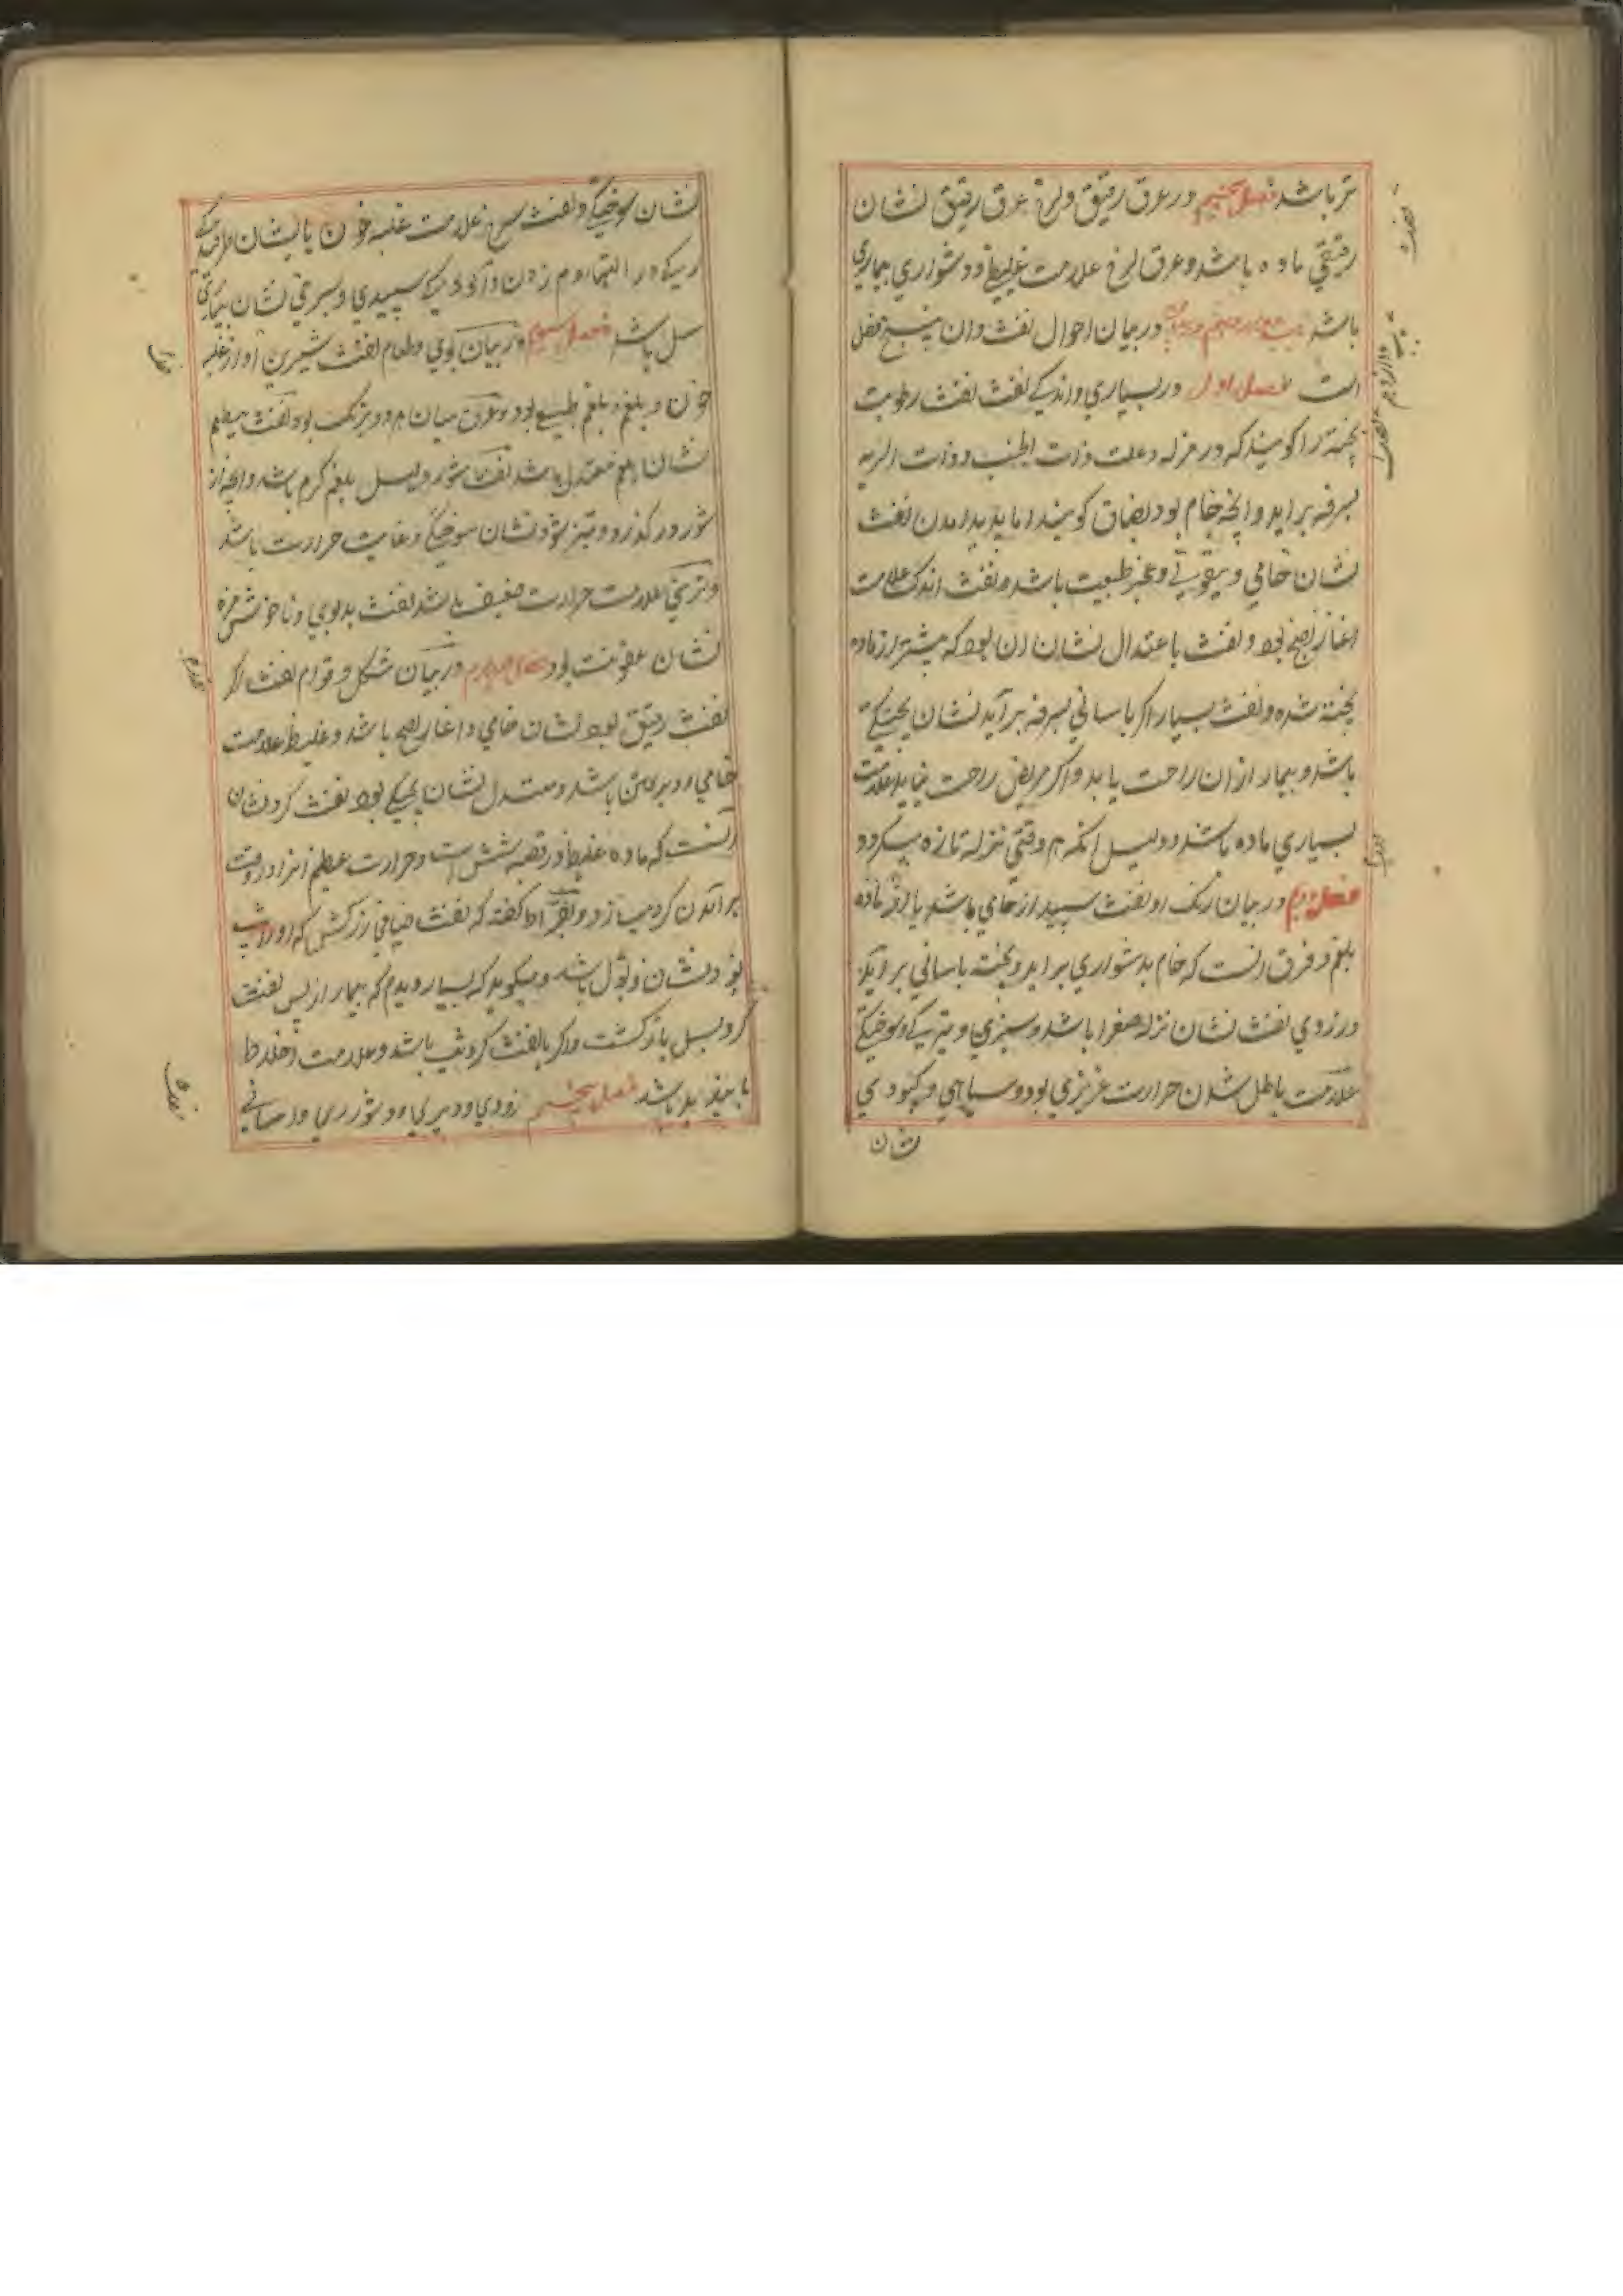 تر باشد فصل پنجم در عرق رقیق ولزج عرق رقیق نشان
رقیقی ماده باشد وعرق لزج علامت غلیظ ودشواری بیماری
باشد در بیان احوال نفث وان پنج فصل
است فصل اول در بسیاری واندکے نفث نفث رطوبت
پخته را کویند که در نزله وعلت ذات الجنب وذات الریه
بسرفه براید وانچه خام بود بصاق کویند اما پدید امدن نفث
نشان خامی وبیقوتے وعجز طبیعت باشد ونفث اندک علامت
اغاز نضج بود ونفث باعتدال نشان ان بود که بیشتر از ماده
پخته شده ونفث بسیار اکر باسانی بسرفه بر آید نشان پختکے
باشد وبیمار ازان راحت یابد واکر مریض راحت نیابد علامت
بسیاری ماده باشد ودلیل انکه هر وقتی نزله تازه میکردد
فصل دوم در بیان رنک او نفث سپید از خامی باشد یا از ماده
بلغم وفرق انست که خام بدشواری براید وپخته باسانی براید
وزردی نفث نشان نزله صفرا باشد وسبزی وتیرکے وسوختکے
علامت باطل شدن حرارت غریزی بود وسیاهی وکبودی
نشان
نشان سوختکے ونفث سرخ علامت غلبه خون یا نشان
سپیدی وسرخی نشان بیماری
سل باشد فصل سیوم در بیان بوی وطعام نفث شیرین او از غلبه
خون وبلغم وبلغم طبیعے بود وفرق میان هر دو برنک بود نفث بیطعم
نشان بلغم معتدل باشد نفث شور دلیل بلغم کرم باشد وانچه از
شور درکذرد وتیز شود نشان سوختکے وغایت حرارت باشد
وترشی علامت حرارت ضعیف باشد نفث بدبوی وناخوش مزه
نشان عفونت بود فصل چهارم در بیان شکل وقوام نفث اکر
نفث رقیق بود نشان خامی واغاز نضج باشد وغلیظ علامت
خامی ودیر باشد ومعتدل نشان پختکے بود نفث کرد نشان
آنست که ماده غلیظ در قصبه شش است وحرارت عظیم انرا در وقت
بر آمدن کرد میسازد وبقراط کفته که نفث که اورا تب
بود نشان ذبول باشد ومیکوید که بسیار دیدم که بیمار از پس نفث
کرد بسل بازکشت واکر با نفث کرد تب باشد وعلامت اختلاط
عقل باشد فصل پنجم زودی ودیری ودشوری واسانی